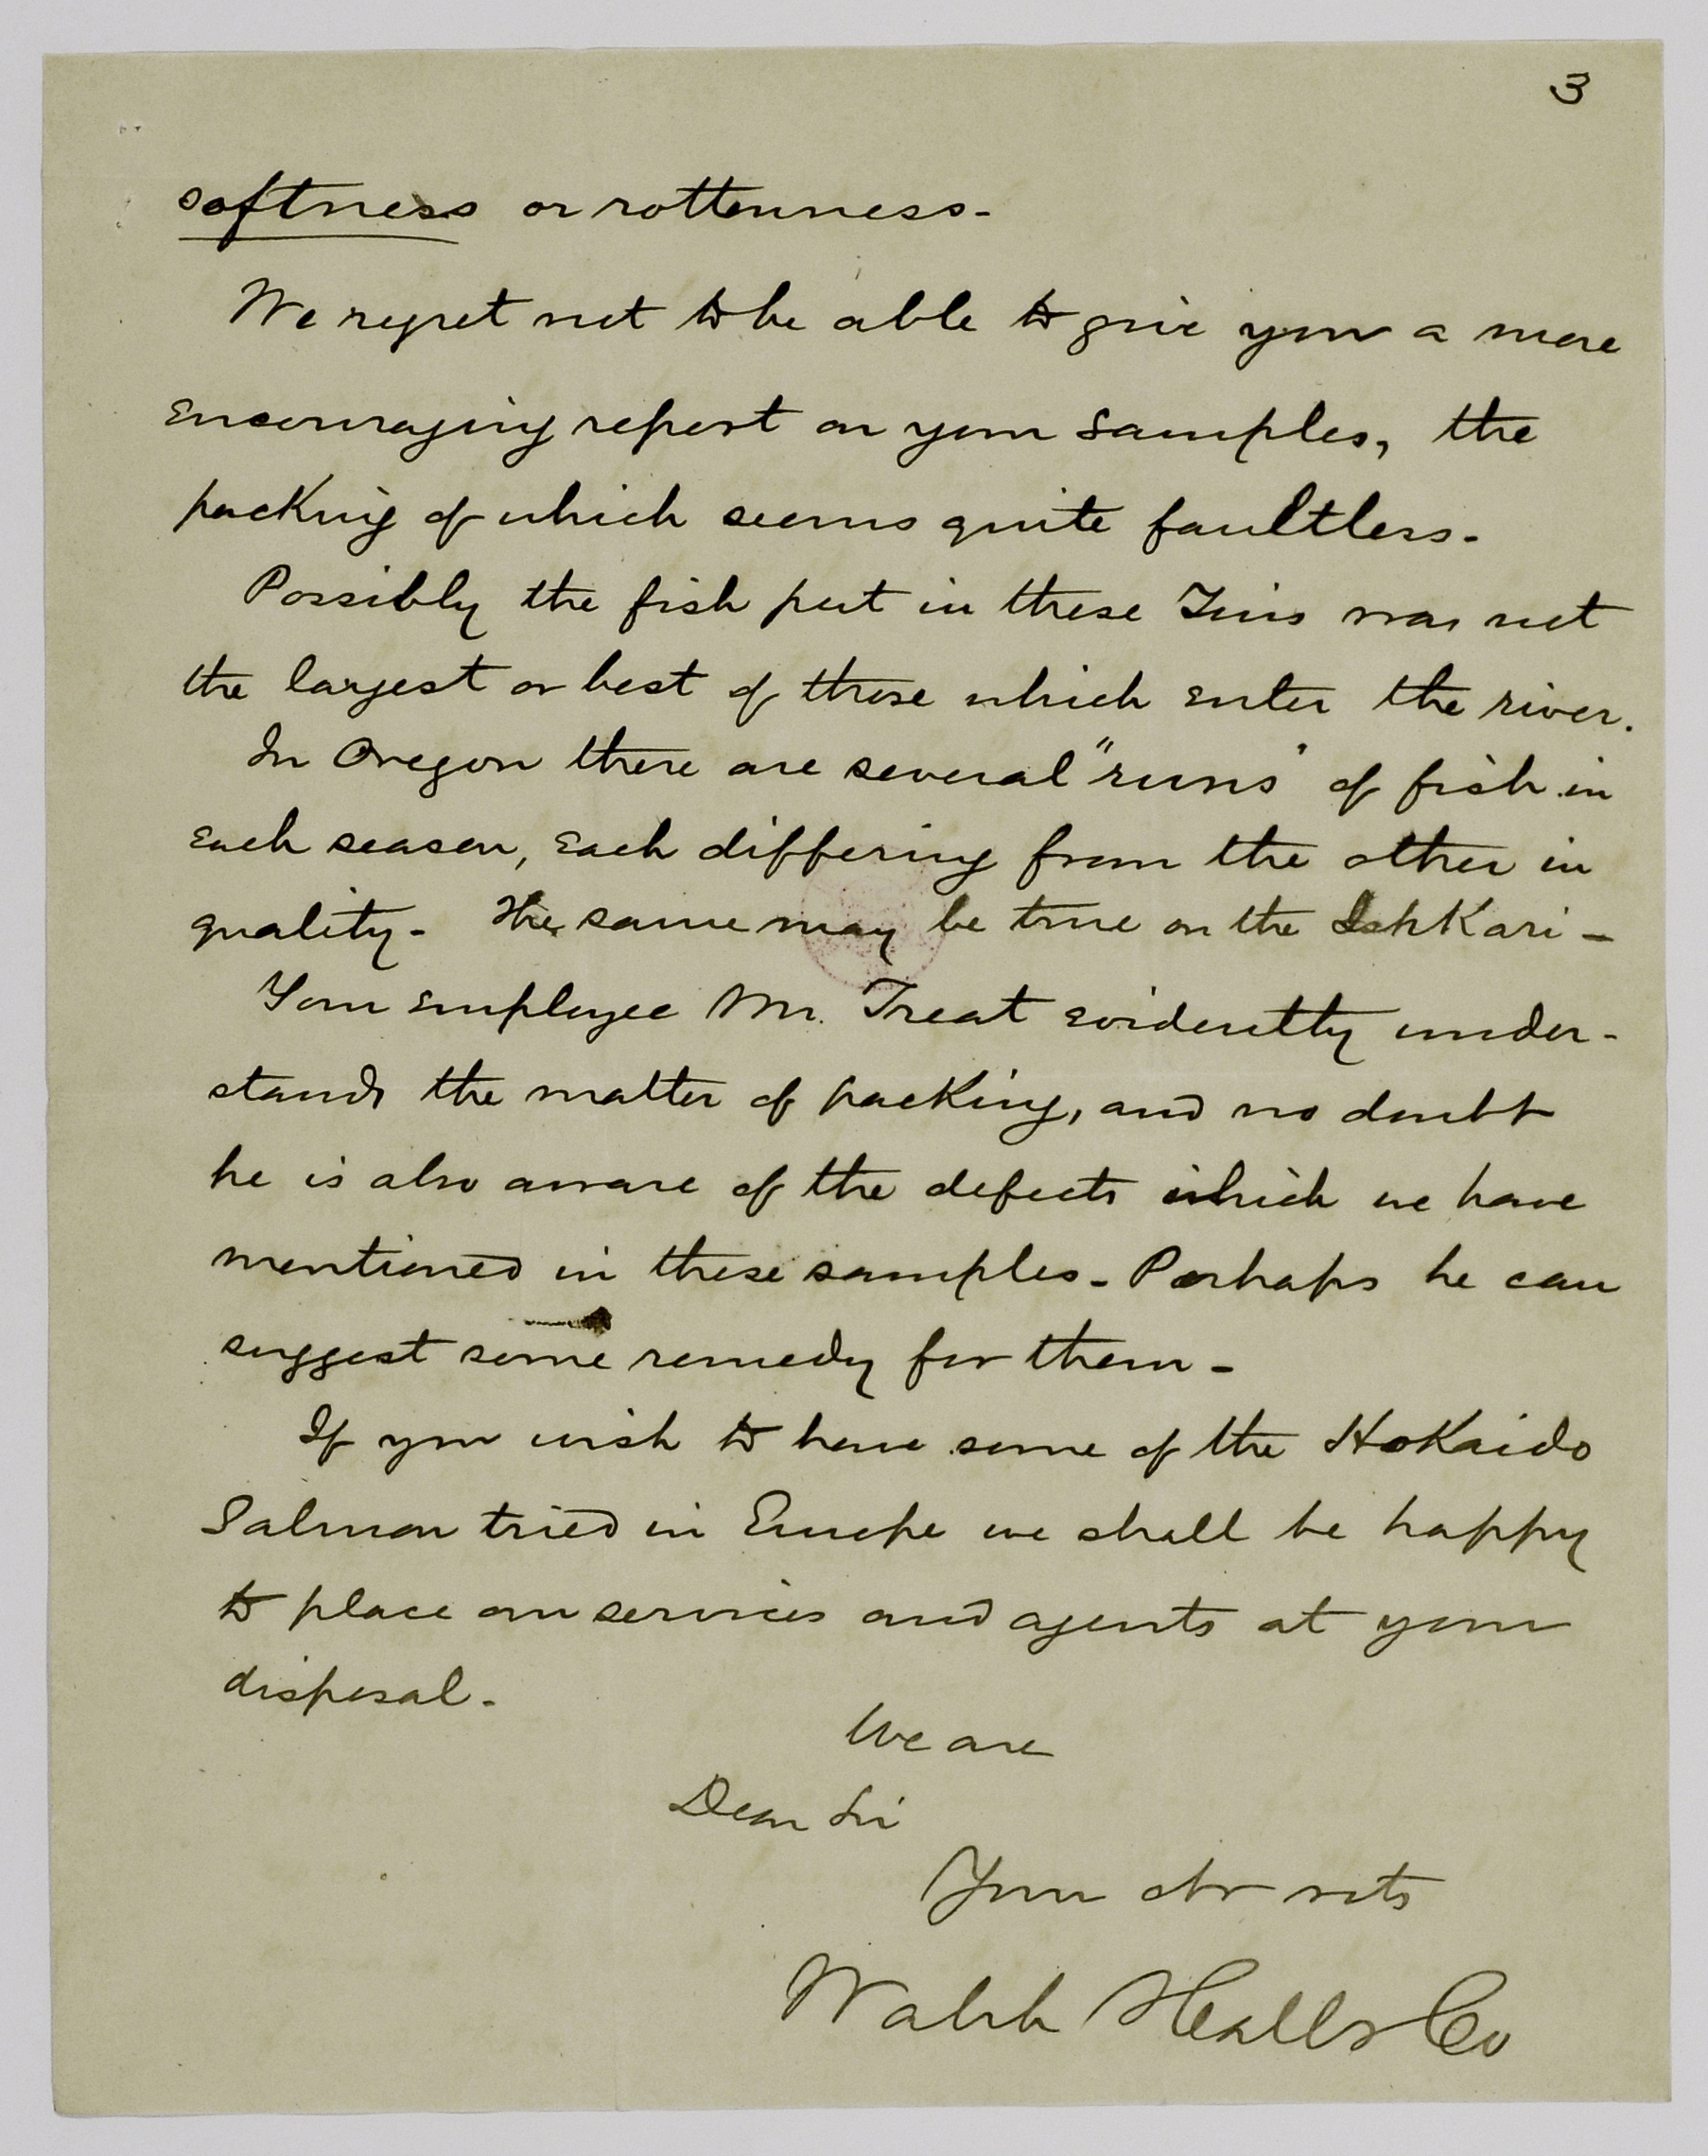 3
softness or rottenness-
We regret not to be able to give you a more
encouraging report on your samples, the
packing of which seems quite faultless-
Possibly the fish put in these Tins was not
the largest or best of those which enter the river.
In Oregon there are several "runs" of fish in
each season, each differing from the other in
quality- The same may be true on the IshKari-
Your employee Mr. Treat evidently under-
stands the matter of packing, and no doubt
he is also aware of the defects which we have
mentioned in these samples- Perhaps he can
suggest some remedy for them-
If you wish to have some of the Hokaido
Salmon tried in Europe we shall be happy
to place our services and agents at your
disposal-
We are
Dear Sir
Your obt svts
Walsh Hall & Co